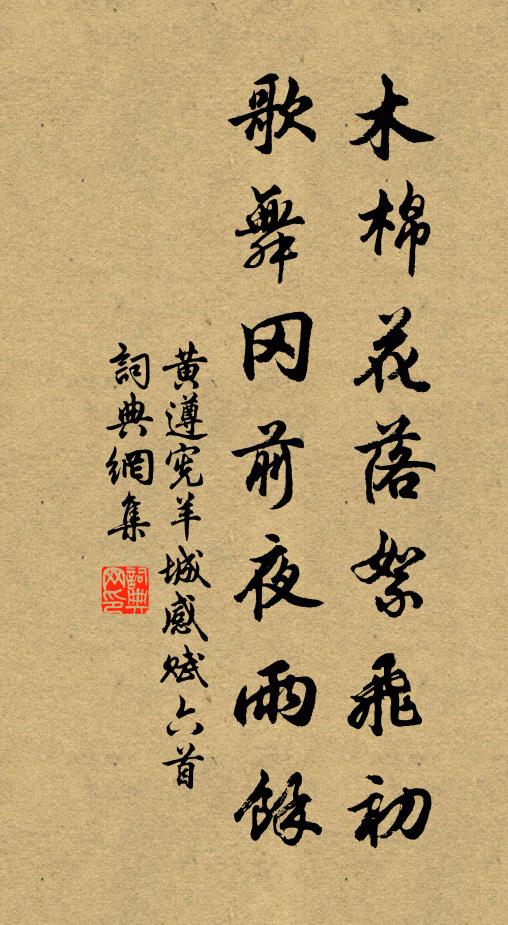 木棉花落絮飛初
歌舞冈前夜雨餘
黃遵宪羊城感赋六首
詞典網集
詞典网印